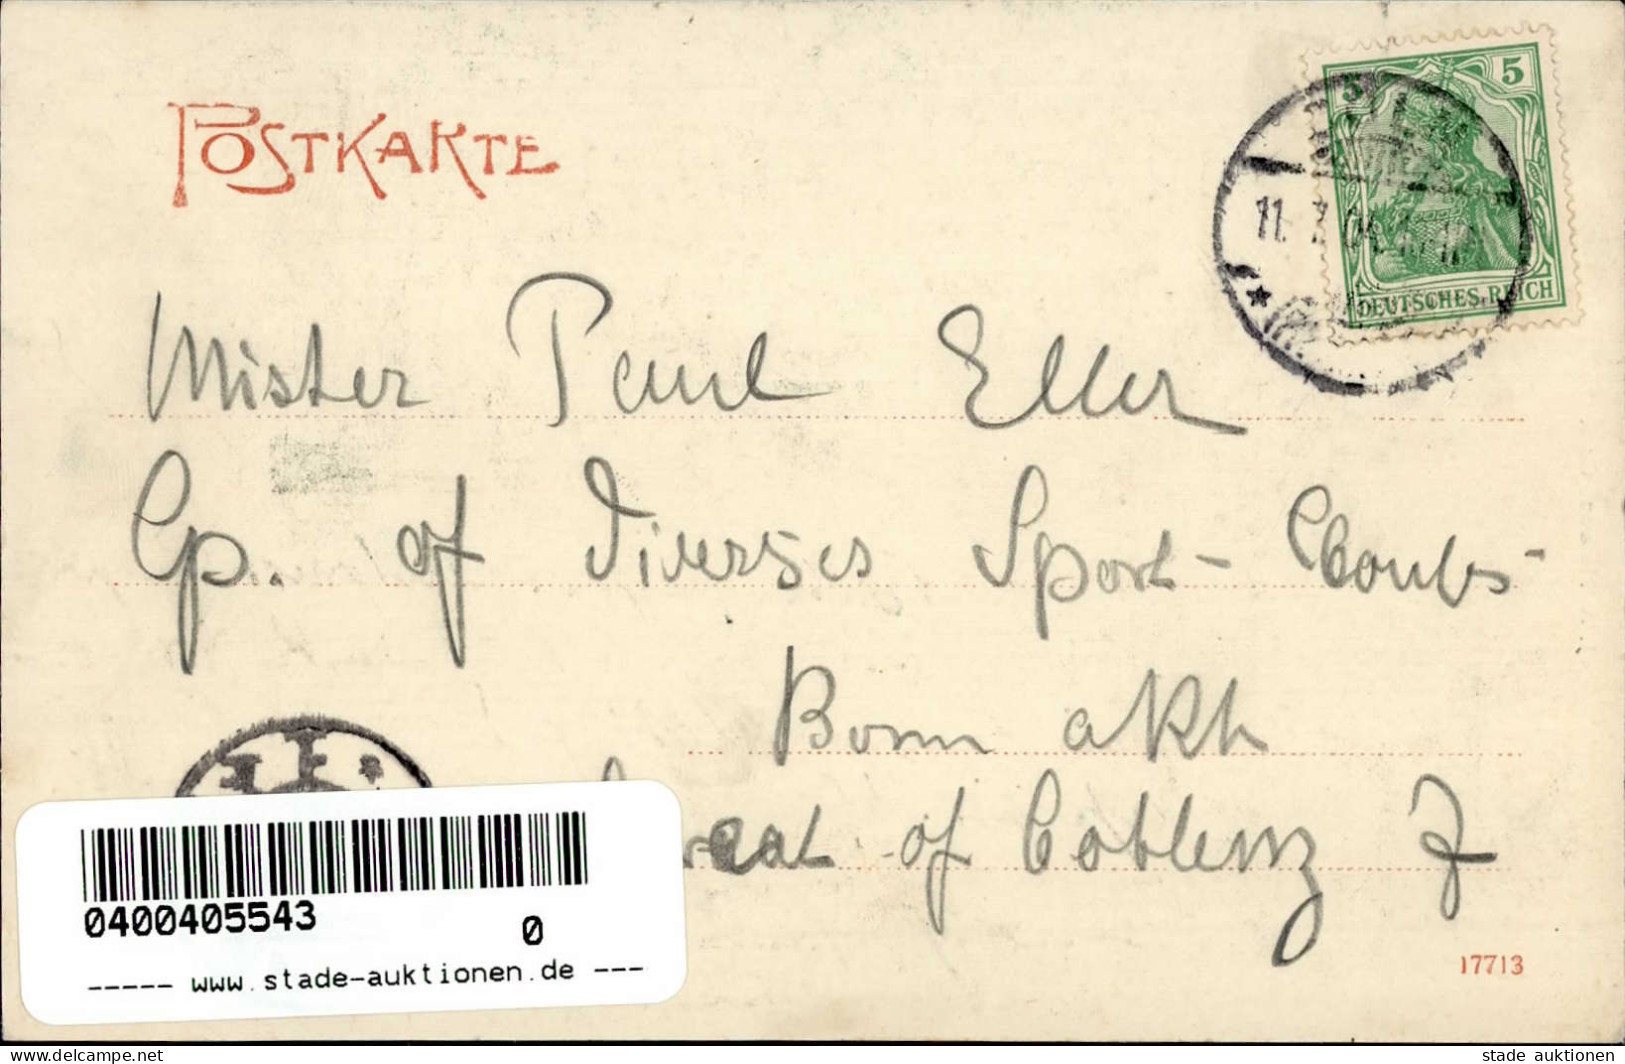 POSTKARTE
5 5
11. 7. 04.
DEUTSCHES REICH
Mister Paul Eller
Cp. of diverses Sport-Cloubs-
Bonn a/Rh
of Coblenz 7
0400405543
0
----- www.stade-auktionen.de ---
17713
stade auktionen
delcampe.net